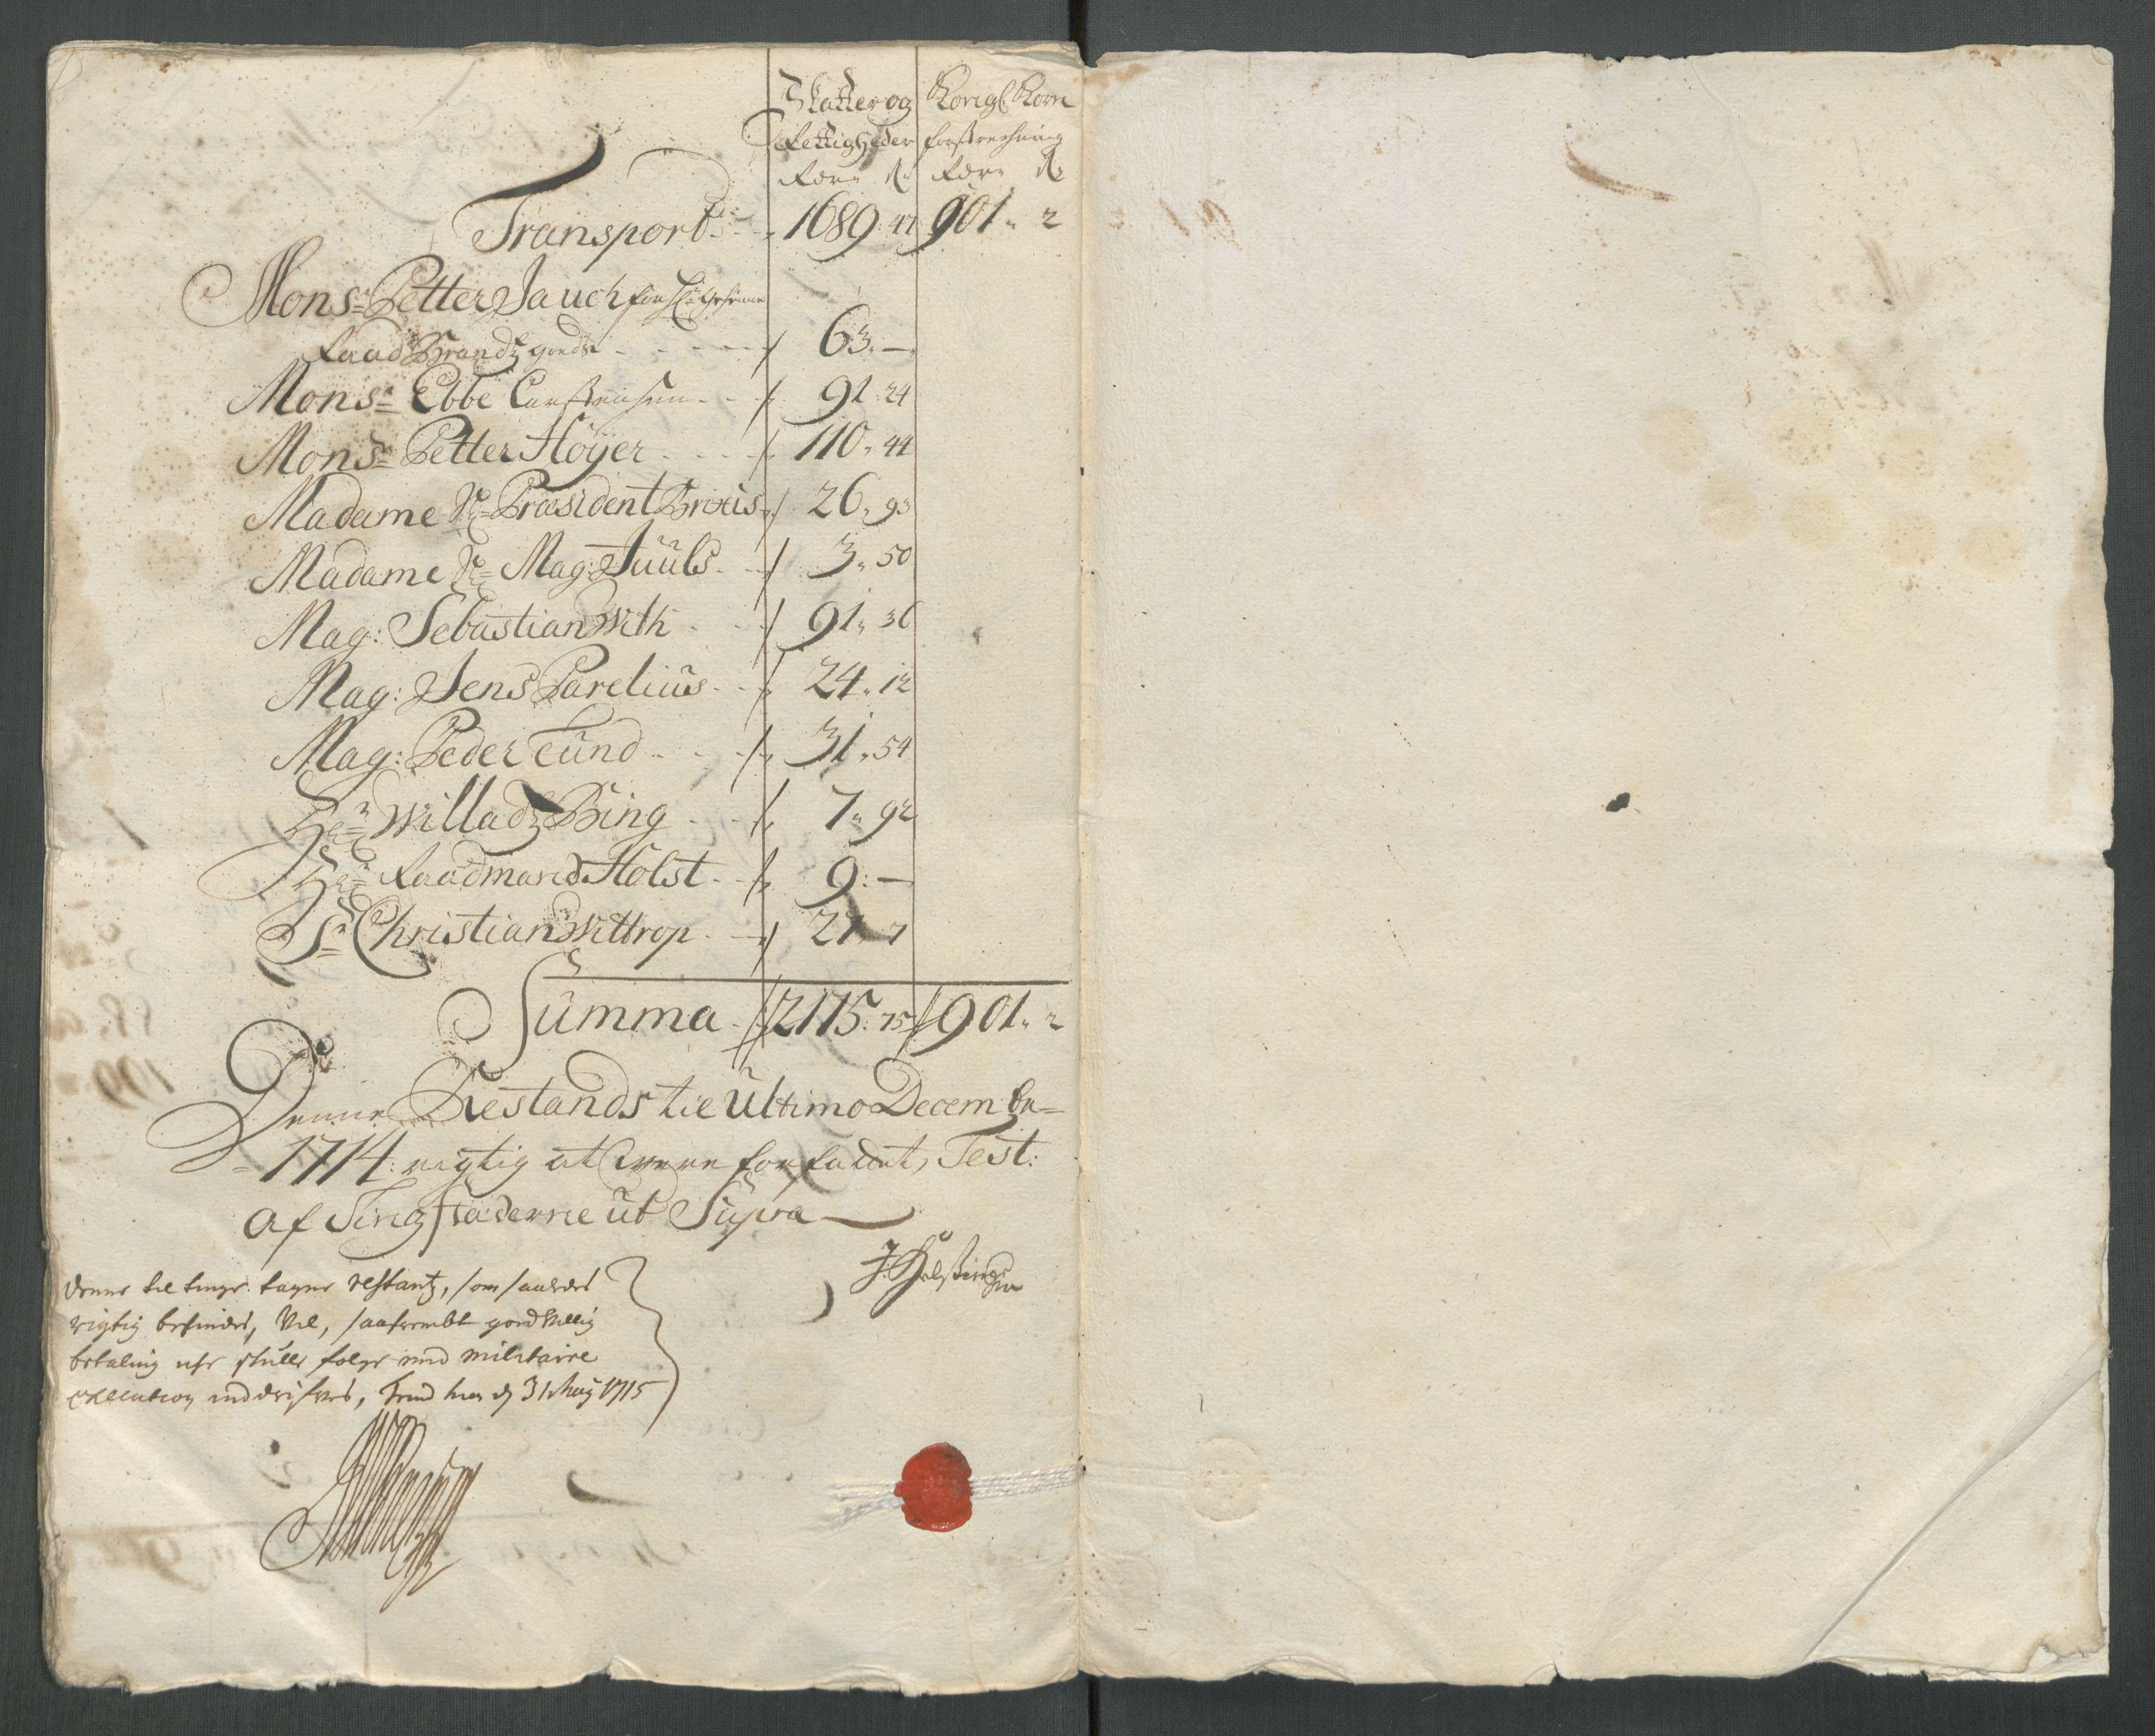 Skatter og Kongl Korn
Rettigheder forstrechning
Transport 1689 : 47 901 " 2
Monsr Petter Jauch for
Raad Brandtz godtz 63 " —
Monsr Ebbe Carstensen 91 : 24
Monsr Petter Höyer 110 " 44
Madame Sl Præsident Brixis 26 " 93
Madame Sl Mag: Juuls 3 " 50
Mag: Sebastian With 91 " 36
Mag: Jens Parelius 24 " 12
Mag: Peder Lund 31 " 54
Hr Willadtz Bing 7 " 92
Hr Raadmand Holst 9 : —
Sr Christian Wittrop
Summa 2175 : 75 901 " 2
Denne Restands til Ultimo Decembr
1714 rigtig at være forfattet, Test:
af Tingstæderne ut Supra
Denne til tinge tagne restantz, som saaledes
rigtig befindes, Vil, saafremt godvillig
betaling iche skulle følge med militaire
execution inddrifves, Trundhm d 31 Maij 1715